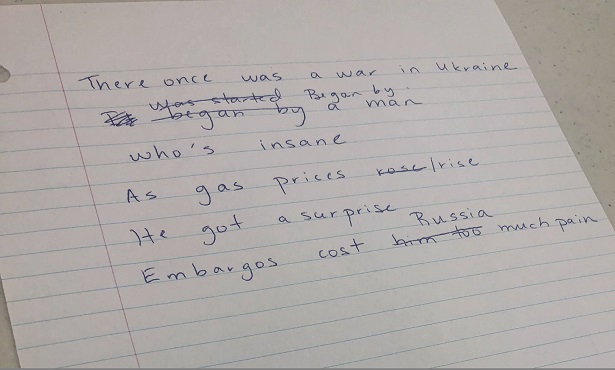 There once was a war in Ukraine
was started Began by
began by a man
who's insane
As gas prices rose/rise
He got a surprise
Russia
Embargos cost him too much pain